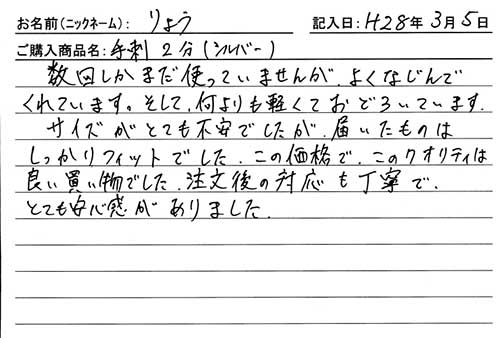 お名前(ニックネーム): りょう 記入日: H28年 3月 5日
ご購入商品名: 手刺 2分(シルバー)
数回しかまだ使っていませんが、よくなじんで
くれています。そして、何よりも軽くておどろいています.
サイズがとても不安でしたが、届いたものは
しっかりフィットでした。この価格で、このクオリティは
良い買い物でした.注文後の対応も丁寧で、
とても安心感がありました.